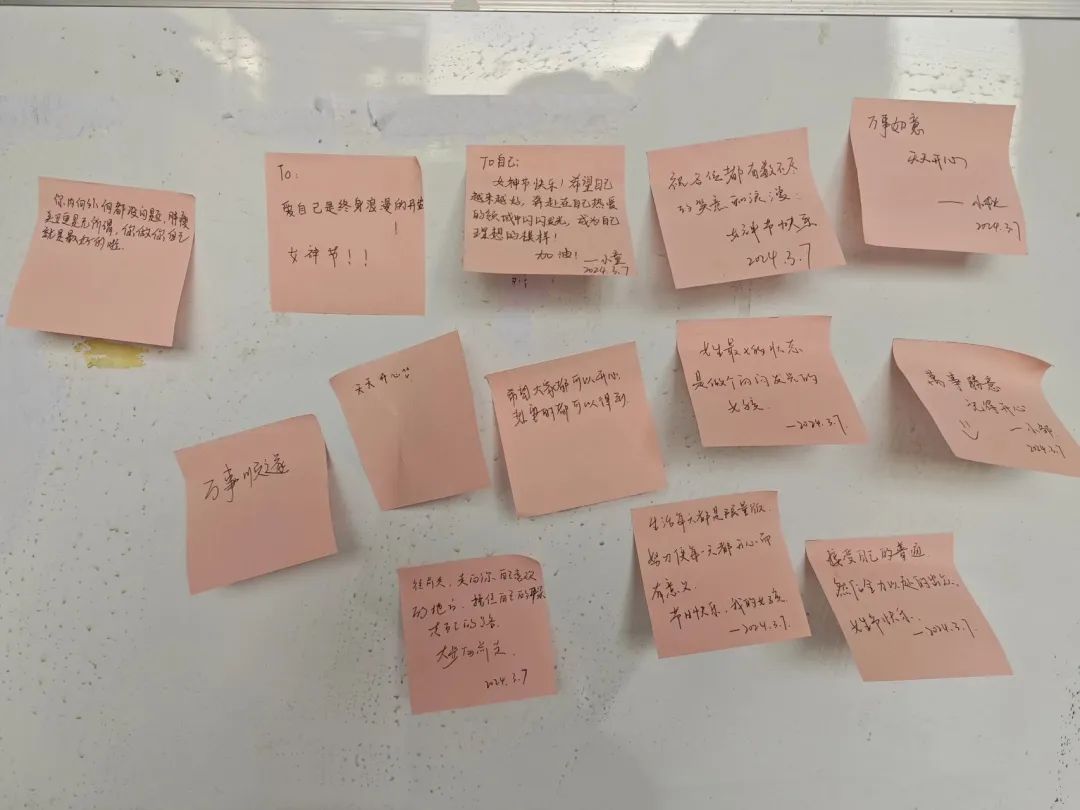 你内向外向都没问题,胖瘦
美丑更是无所谓,你做你自己
就是最好的啦.
To:
爱自己是终身浪漫的开始
!
女神节!!
To自己:
女神节快乐!希望自己
越来越好,奔赴在自己热爱
的领域中闪闪发光,成为自己
理想的模样!
加油!
—小童
2024.3.7
祝各位都有数不尽
的笑意和浪漫:
女神节快乐
2024.3.7
万事如意
天天开心
——小
2024.3.7
万事顺遂
天天开心
希望大家都可以开心
想要的都可以得到.
女生最好的状态
是做个闪闪发光的
女孩.
—2024.3.7.
萬事勝意
记得开心
—小
2024.3.7
往前走,去向你自己喜欢
的地方,
走自己的路.
大步向前走.
2024.3.7
生活每天都是限量版.
努力使每一天都开心而
有意义
节日快乐,我的女孩.
—2024.3.7.
接受自己的普通
然后全力以赴的出众.
女生节快乐.
—2024.3.7.